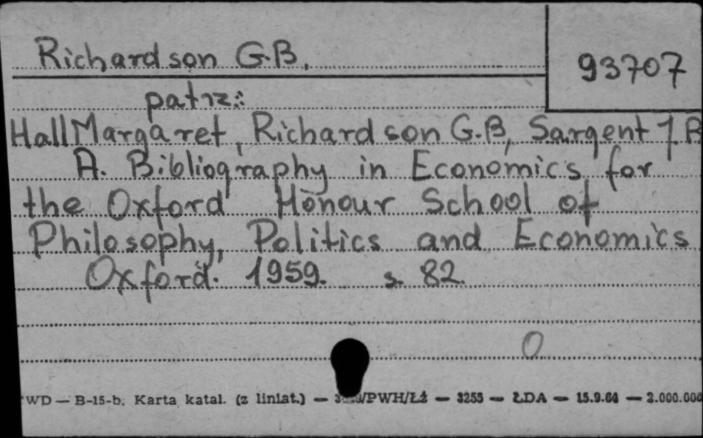 Richardson G.B.
93707
patrz:
Hall Margaret, Richardson G.B, Sargent J.R
A. Bibliography in Economics for
the Oxford Honour School of
Philosophy, Politics and Economics
Oxford. 1959. s. 82.
0
WD — B-15-b. Karta katal. (z liniat.) — /PWH/Łż — 3255 — ŁDA — 15.9.64 — 2.000.000